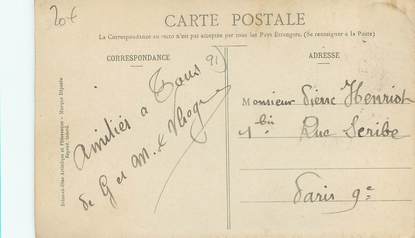 20€
CARTE POSTALE
La Correspondance au recto n'est pas acceptée par tous les Pays Étrangers. (Se renseigner à la Poste)
CORRESPONDANCE
ADRESSE
91
Amitiés à Tous
de G et M.
Monsieur Pierre Henriot
1 bis Rue Scribe
Paris 9e